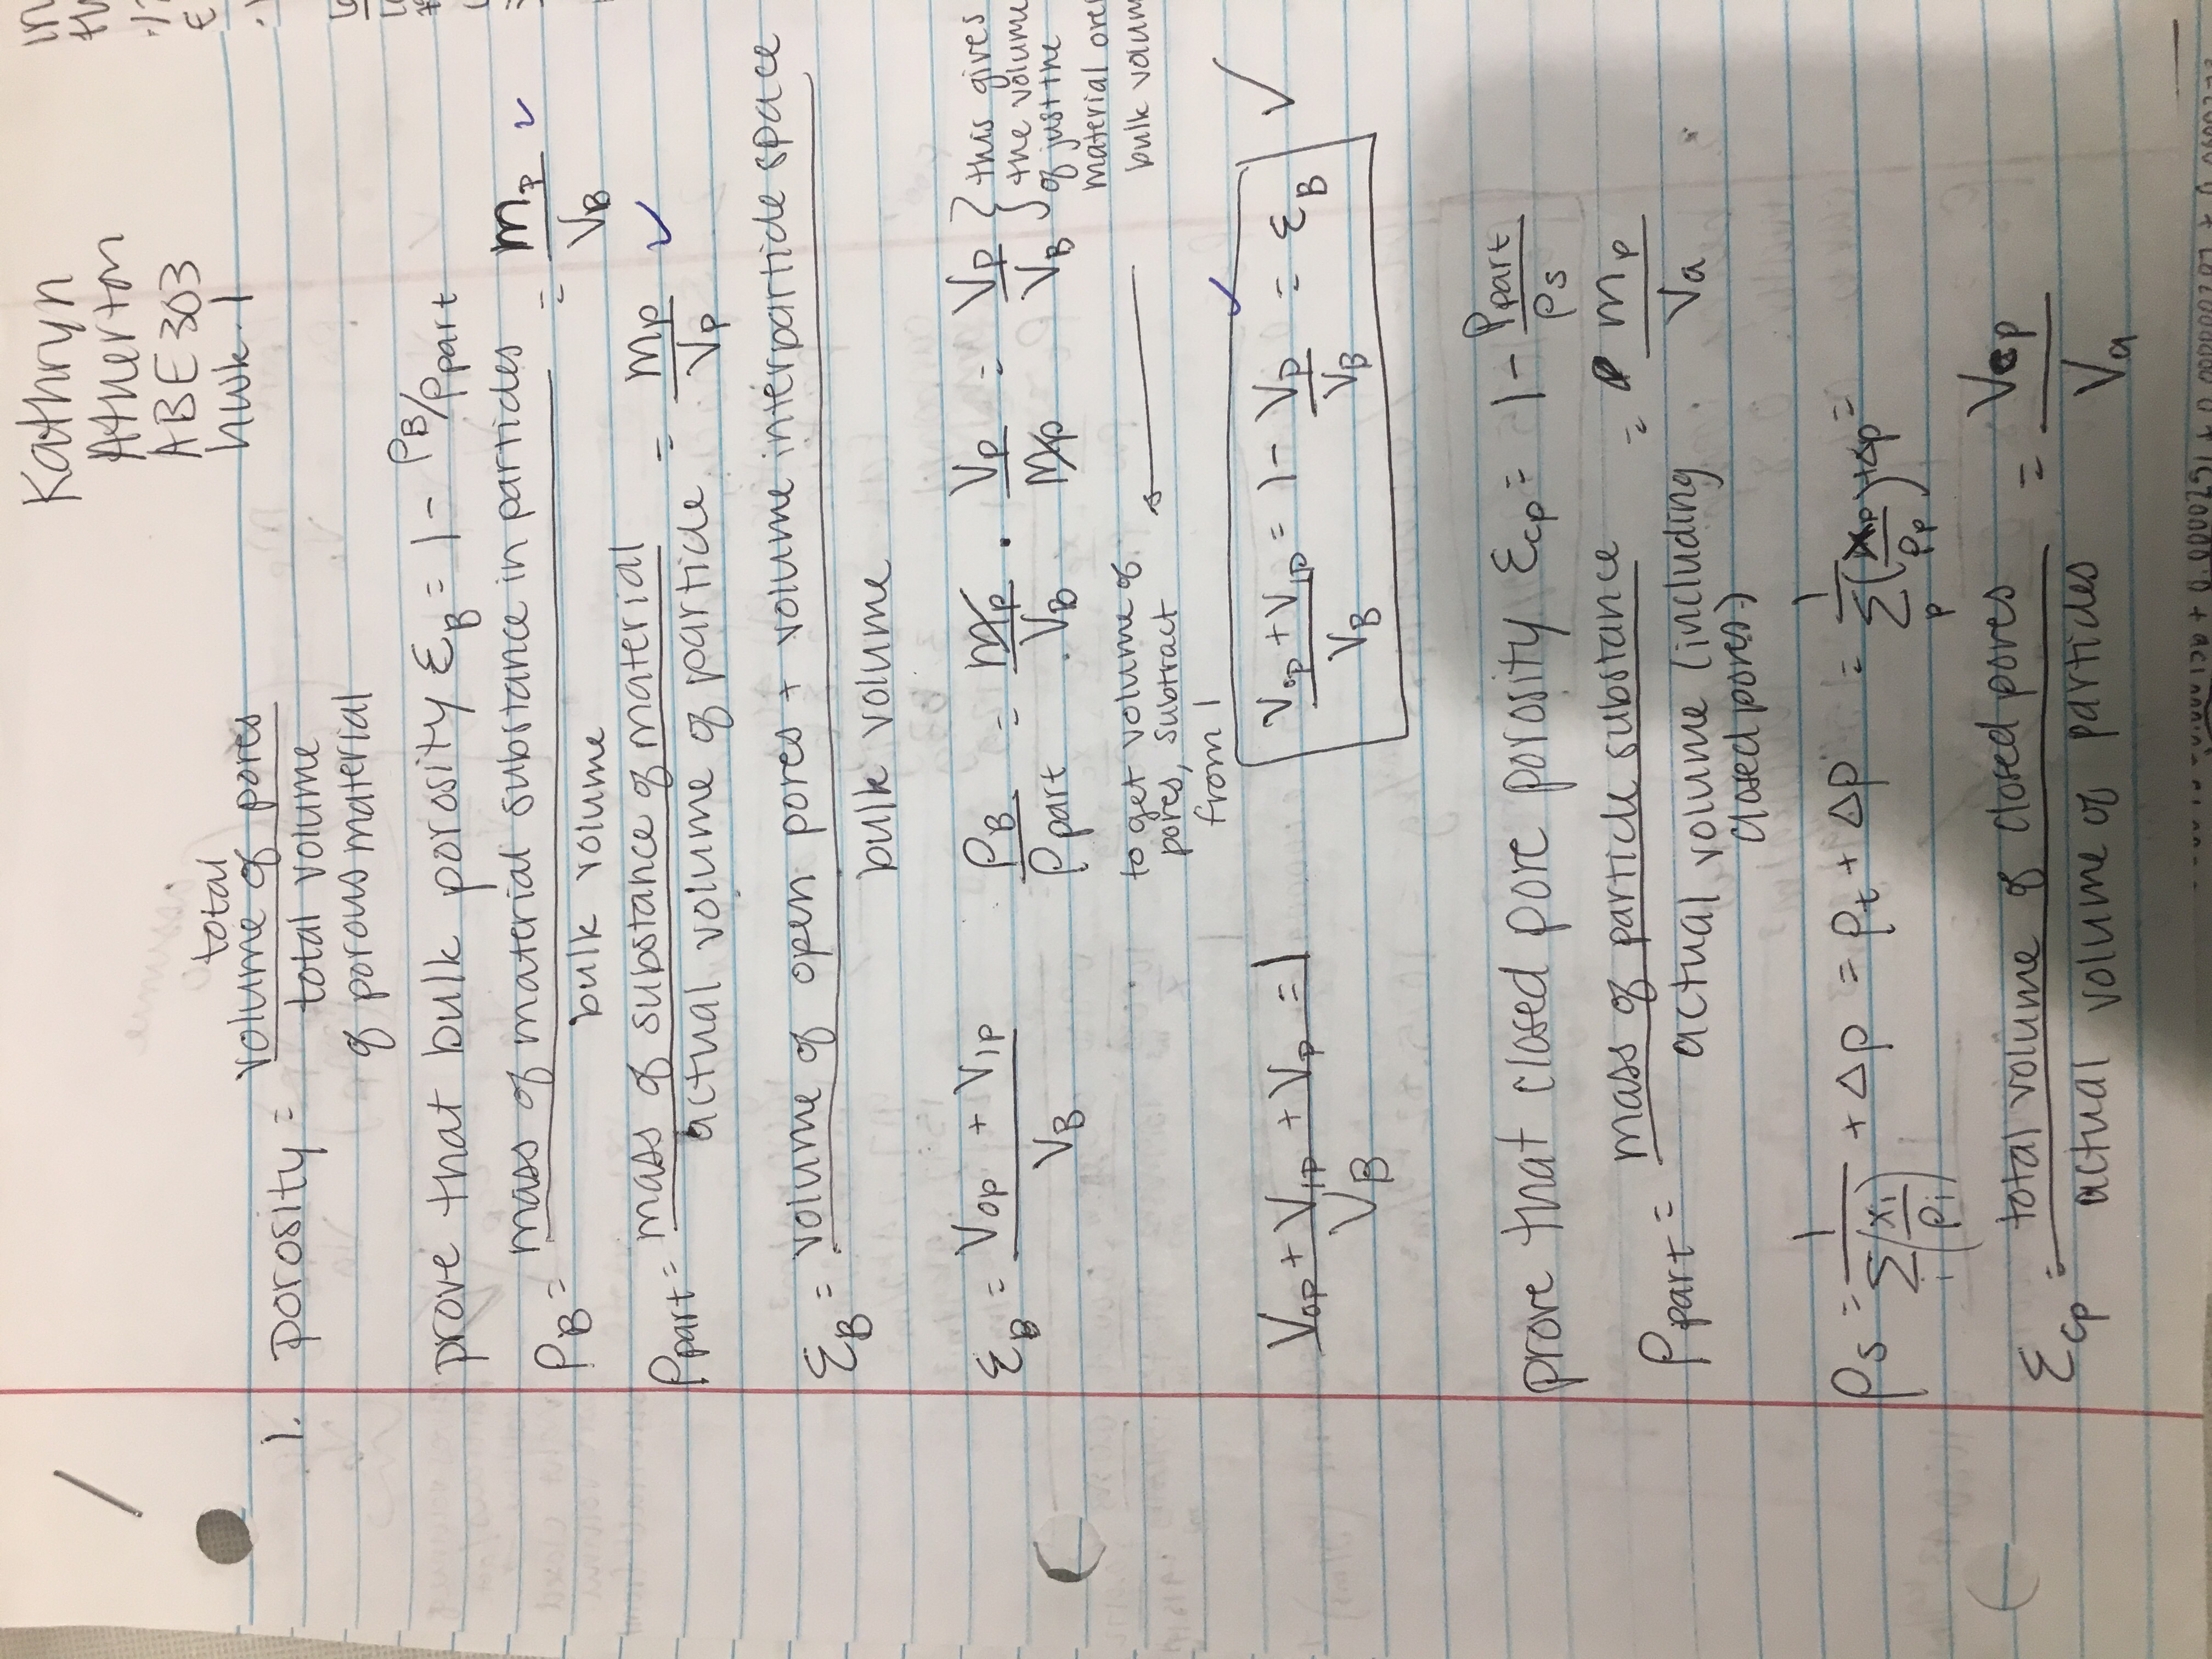 Kathryn
Atherton
ABE 303
hwk. 1
1. porosity = total volume of pores / total volume of porous material
prove that bulk porosity ε_B = 1 - ρ_B/ρ_part
ρ_B = mass of material substance in particles / bulk volume = m_p / V_B ✓
ρ_part = mass of substance of material / actual volume of particle = m_p / V_p ✓
ε_B = volume of open pores + volume interparticle space / bulk volume
ε_B = V_op + V_ip / V_B
ρ_B / ρ_part = m_p / V_B · V_p / m_p = V_p / V_B } this gives
the volume
of just the
material
bulk
to get volume of
pores, subtract
from 1
V_op + V_ip + V_p / V_B = 1
V_op + V_ip / V_B = 1 - V_p / V_B = ε_B ✓
prove that closed pore porosity ε_cp = 1 - ρ_part / ρ_s
ρ_part = mass of particle substance / actual volume (including closed pores) = m_p / V_a
ρ_s = 1 / Σ_i (x_i / ρ_i) + Δρ = ρ_t + Δρ = 1 / Σ_p (x_p / ρ_p) + Δρ =
ε_cp = total volume of closed pores / actual volume of particles = V_cp / V_a